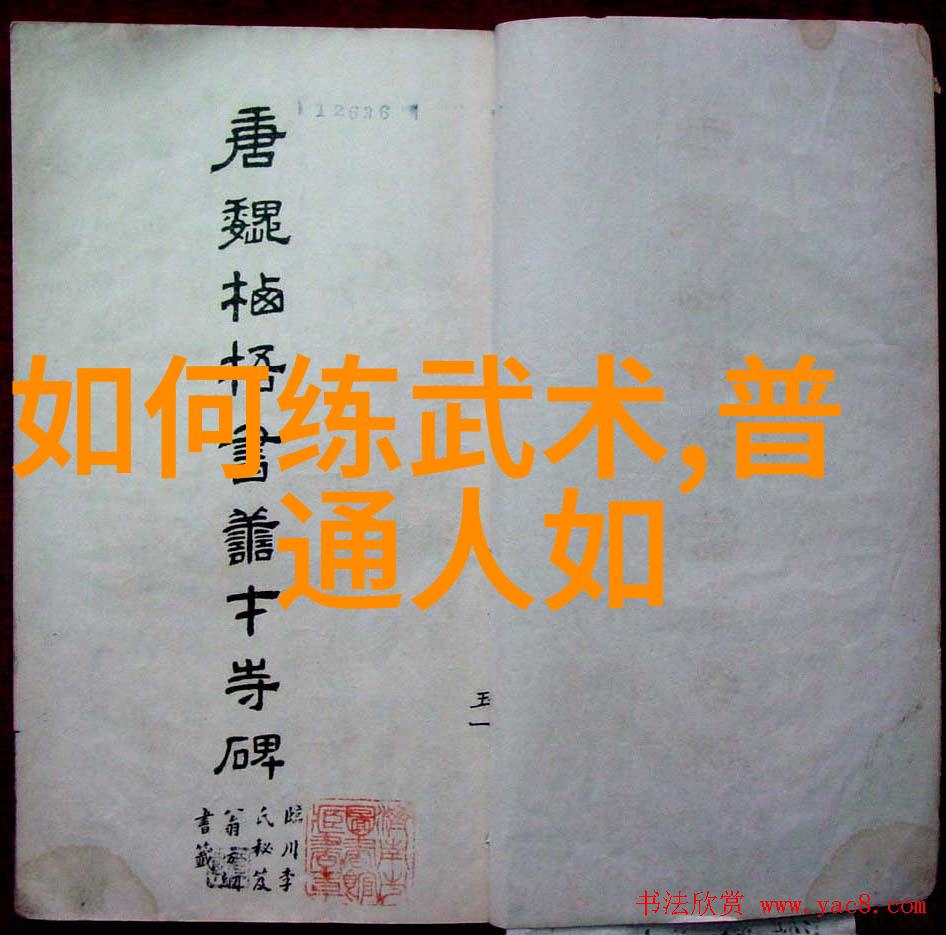 12636
唐魏栖梧書善才寺碑
臨川李
氏秘笈
翁方綱
書籤
如何练武术,普
通人如
五一
书法欣赏 www.yac8.com